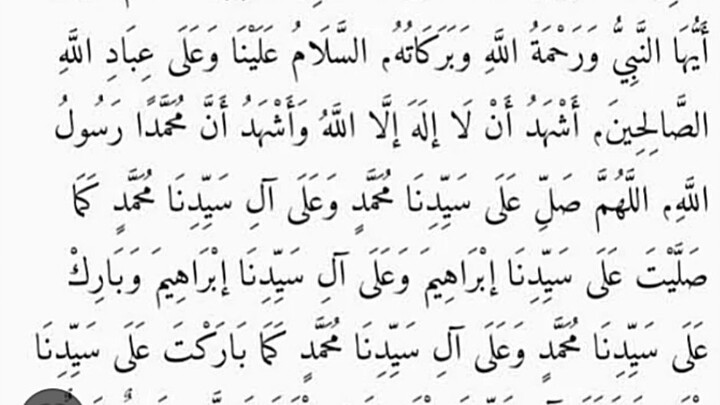 أَيُّهَا النَّبِيُّ وَرَحْمَةُ اللَّهِ وَبَرَكَاتُهُ. السَّلَامُ عَلَيْنَا وَعَلَى عِبَادِ اللَّهِ
الصَّالِحِينَ. أَشْهَدُ أَنْ لَا إِلَهَ إِلَّا اللَّهُ وَأَشْهَدُ أَنَّ مُحَمَّدًا رَسُولُ
اللَّهِ. اللَّهُمَّ صَلِّ عَلَى سَيِّدِنَا مُحَمَّدٍ وَعَلَى آلِ سَيِّدِنَا مُحَمَّدٍ كَمَا
صَلَّيْتَ عَلَى سَيِّدِنَا إِبْرَاهِيمَ وَعَلَى آلِ سَيِّدِنَا إِبْرَاهِيمَ وَبَارِكْ
عَلَى سَيِّدِنَا مُحَمَّدٍ وَعَلَى آلِ سَيِّدِنَا مُحَمَّدٍ كَمَا بَارَكْتَ عَلَى سَيِّدِنَا